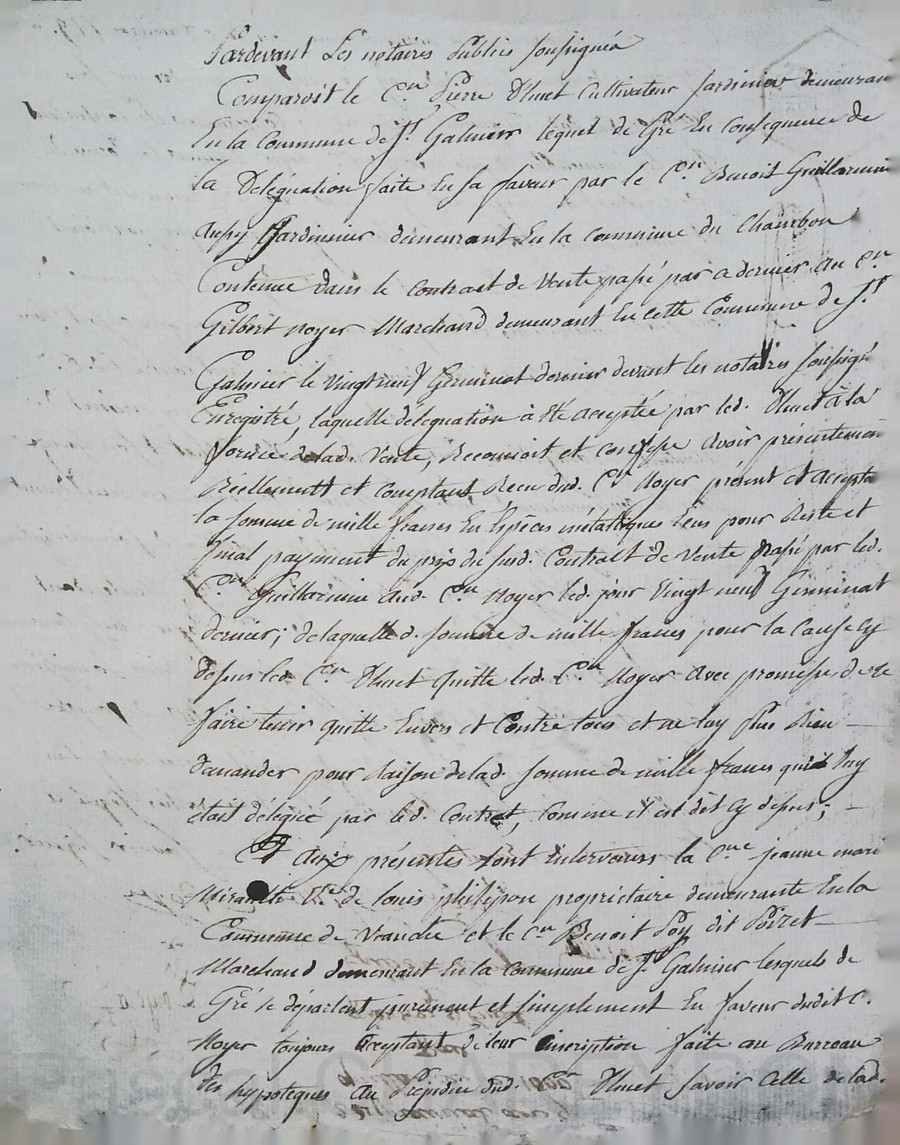 Pardevant Les notaires Publics soussignés
Comparoit le C.en Pierre Thuet Cultivateur Jardinier demeuran
En la Commune de St. Galmier lequel de Gré En Consequence de
la Delégation faite En sa faveur par le C.en Benoit Guillarmin
Jardinier demeurant En la Commune du Chambon
Contenue dans le Contract de Vente passé par ce dernier au C.en
Gilbert noyer Marchand demeurant En cette Commune de St.
Galmier le Vingt neuf Germinal dernier devant les notaires soussigné
Enregistré, laquelle délegation à Eté acceptée par led. Thuet à la
forme de lad. Vente, Reconnoit et confesse avoir présentement
Reellement et comptant Receu dud. C.en Noyer présent et accepta
la somme de mille francs En Espèces métalliques Pour Reste et
final payement du prix du susd. Contract de Vente passé par led.
C.en Guillarmin aud. C.en Noyer led. jour Vingt neuf Germinal
dernier; de laquelle d. somme de mille francs pour la Cause cy
dessus led. C.en Thuet quitte led. C.en Noyer avec promesse de le
faire tenir quitte Envers et Contre tous et ne luy Plus Rien
demander pour Raison de lad. somme de mille francs qui luy
était délégué par led. Contrat, comme il est dit cy dessus;
Et aux présentes sont intervenus la C.ne jeanne mari
V.e de louis philipon propriétaire demeurante En la
Commune de Veauche et le C.en Benoit Poy dit Poizet
Marchand demeurant En la commune de St. Galmier lesquels de
Gré se départent purement et simplement En faveur dudit C.
Noyer toujours acceptant de leur inscription faite au Burreau
des hypoteques au Préjudice dud. C.en Thuet savoir Celle de lad.